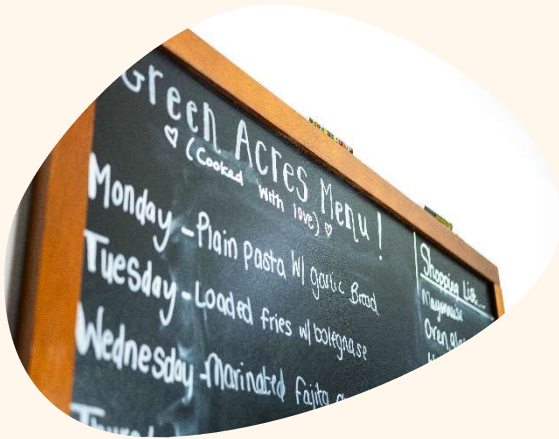 Green Acres Menu!
♡ (Cooked with love) ♡
Monday - Plain pasta W/ garlic Bread
Tuesday - Loaded fries w/ bolegnase
Wednesday - Marinated Fajita
Shopping List...
Mayonnaise